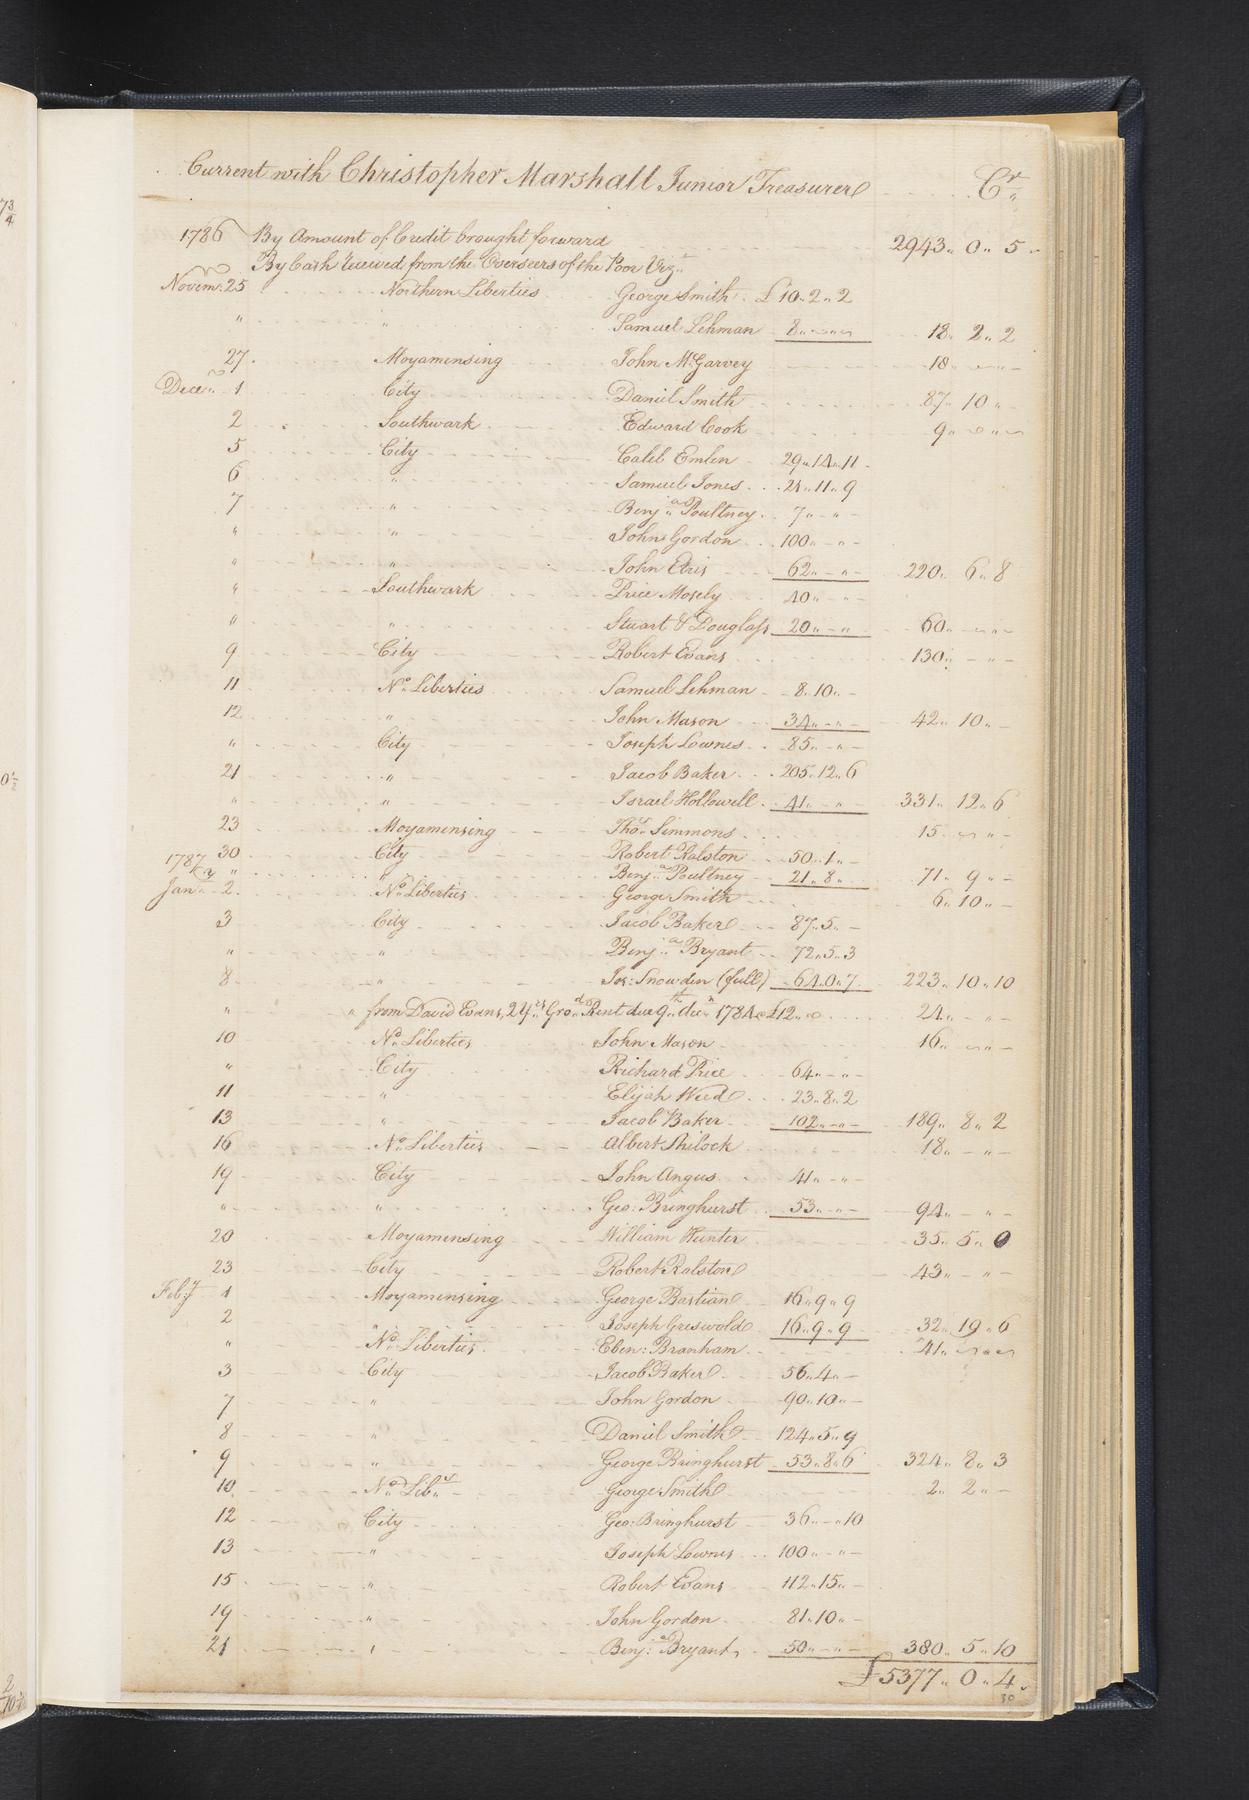 Current with Christopher Marshall Junior Treasurer Cr
1786 By Amount of Credit brought forward 2943 .. 0 .. 5
By Cash received from the Overseers of the Poor Vizt
Novem. 25 Northern Liberties George Smith £10 .. 2 .. 2
" " Samuel Lehman 8 .. - .. - 18 .. 2 .. 2
27 Moyamensing John McGarvey 18 .. - .. -
Decem 1 City Daniel Smith 87 .. 10 .. -
2 Southwark Edward Cook 9 .. - .. -
5 City Caleb Emlen 29 .. 14 .. 11
6 " Samuel Jones 21 .. 11 .. 9
7 " Benja Poultney 7 .. - .. -
" " John Gordon 100 .. - .. -
" " John Etris 62 .. - .. - 220 .. 6 .. 8
" Southwark Price Mosely 40 .. - .. -
" " Stuart & Douglass 20 .. - .. - 60 .. - .. -
9 City Robert Evans 130 .. - .. -
11 No Liberties Samuel Lehman 8 .. 10 .. -
12 " John Mason 34 .. - .. - 42 .. 10 .. -
" City Joseph Lownes 85 .. - .. -
21 " Jacob Baker 205 .. 12 .. 6
" " Israel Hollowell 41 .. - .. - 331 .. 12 .. 6
23 Moyamensing Thos Simmons 15 .. - .. -
30 City Robert Ralston 50 .. 1 .. -
1787 " " Benja Poultney 21 .. 8 .. 71 .. 9 .. -
Jany 2 No Liberties George Smith 6 .. 10 .. -
3 City Jacob Baker 87 .. 5 .. -
" " Benja Bryant 72 .. 5 .. 3
8 " Jos: Snowden (full) 64 .. 0 .. 7 223 .. 10 .. 10
" " from David Evans, 2 Yrs Grod Rent due 9th decr 1784 @ £12 .. 24 .. - .. -
10 No Liberties John Mason 16 .. - .. -
" City Richard Price 64 .. - .. -
11 " Elijah Weed 23 .. 8 .. 2
13 " Jacob Baker 102 .. - .. - 189 .. 8 .. 2
16 No Liberties Albert Shilock 18 .. - .. -
19 City John Angus 41 .. - .. -
" " Geo: Bringhurst 53 .. - .. - 94 .. - .. -
20 Moyamensing William Hunter 35 .. 5 .. 0
23 City Robert Ralston 43 .. - .. -
Feby 1 Moyamensing George Bastian 16 .. 9 .. 9
2 " Joseph Greswold 16 .. 9 .. 9 32 .. 19 .. 6
" No Liberties Eben: Branham 41 .. - .. -
3 City Jacob Baker 56 .. 4 .. -
7 " John Gordon 90 .. 10 .. -
8 " Daniel Smith 124 .. 5 .. 9
9 " George Bringhurst 53 .. 8 .. 6 324 .. 8 .. 3
10 No Libs George Smith 2 .. 2 .. -
12 City Geo: Bringhurst 36 .. - .. 10
13 " Joseph Lownes 100 .. - .. -
15 " Robert Evans 112 .. 15 .. -
19 " John Gordon 81 .. 10 .. -
21 " Benja Bryant 50 .. - .. - 380 .. 5 .. 10
£5377 .. 0 .. 4
30